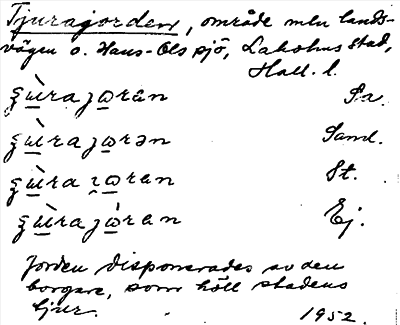 Tjurajorden, område mln lands-
vägen o. Hans-Ols sjö, Laholms stad,
Hall. l.
ʒùrajorån Sa.
ʒùrajorən Sand.
ʒùra joran St.
ʒùrajòran Ej.
Jorden disponerades av den
borgare, som höll stadens
tjur. 1952.